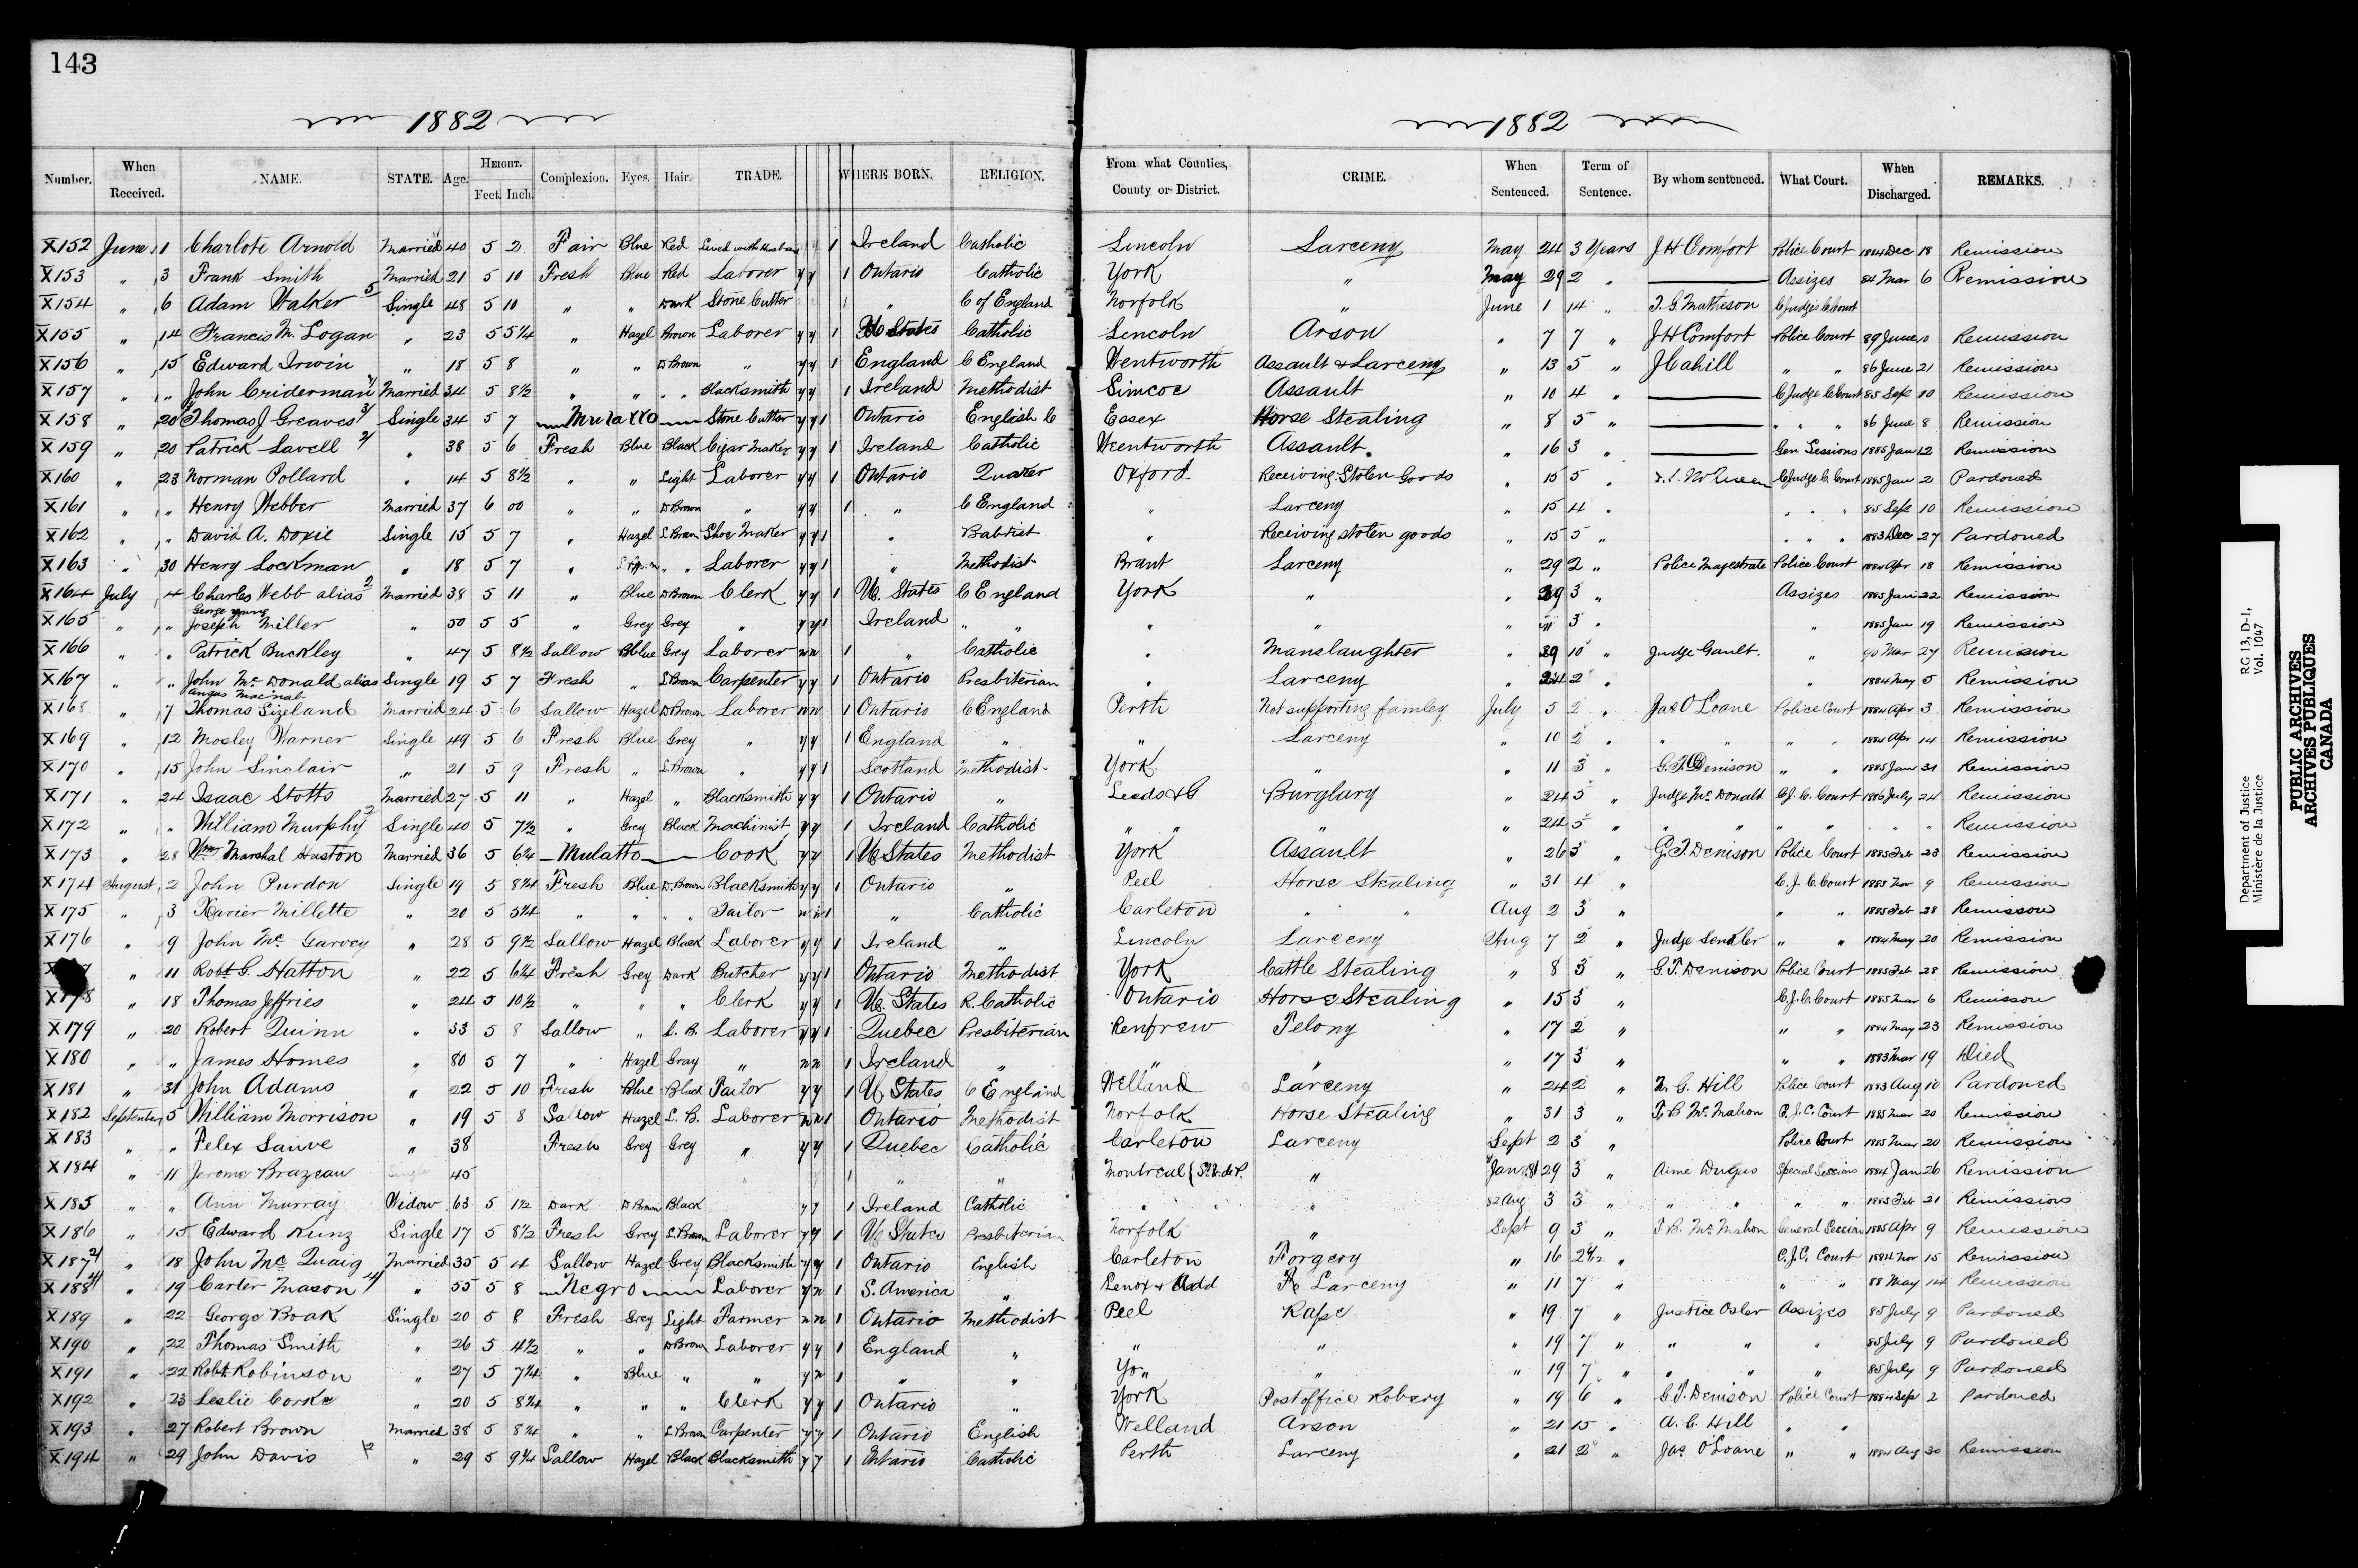 143
1882
1882
Number. When Received. NAME. STATE. Age. HEIGHT. Feet. Inch. Complexion. Eyes. Hair. TRADE. WHERE BORN. RELIGION. From what Counties, County or District. CRIME. When Sentenced. Term of Sentence. By whom sentenced. What Court. When Discharged. REMARKS.
X152 June 1 Charlote Arnold Married 40 5 2 Fair Blue Red Lived with Husban 1 Ireland Catholic Lincoln Larceny May 24 3 Years J H Comfort Police Court 1884 Dec 18 Remission
X153 " 3 Frank Smith Married 21 5 10 Fresh Blue Red Laborer y y 1 Ontario Catholic York " May 29 2 " Assizes 84 Mar 6 Remission
X154 " 6 Adam Walker 5 Single 48 5 10 " " Dark Stone Cutter 1 " C of England Norfolk " June 1 14 " C Judges C Court
X155 " 14 Francis M. Logan " 23 5 5¼ " Hazel Brown Laborer y y 1 U States Catholic Lincoln Arson " 7 7 " J H Comfort Police Court 89 June 10 Remission
X156 " 15 Edward Irwin " 18 5 8 " " D Brown " y y 1 England C England Wentworth Assault & Larceny " 13 5 " J Cahill " " 86 June 21 Remission
X157 " " John Criderman Married 34 5 8½ " " " " Blacksmith y y 1 Ireland Methodist Simcoe Assault " 10 4 " C Judge C Court 85 Sept 10 Remission
X158 " 20 Thomas J Greaves 3/ Single 34 5 7 Mulatto Stone Cutter y y 1 Ontario English C Essex Horse Stealing " 8 5 " " " " 86 June 8 Remission
X159 " 20 Patrick Lavell 2/ " 38 5 6 Fresh Blue Black Cigar Maker y y 1 Ireland Catholic Wentworth Assault. " 16 3 " Gen Sessions 1885 Jan 12 Remission
X160 " 23 Norman Pollard " 14 5 8½ " " Light Laborer y y 1 Ontario Quaker Oxford Receiving Stolen Goods " 15 5 " C Judge C. Court 1885 Jan 2 Pardoned
X161 " " Henry Webber Married 37 6 00 " " D Brown " y y 1 " C England " Larceny " 15 4 " " " " 85 Sept 10 Remission
X162 " " David A. Doxie Single 15 5 7 " Hazel L Brown Shoe Maker y y 1 " Babtist " Receiving stolen goods " 15 5 " " " " 1883 Dec 27 Pardoned
X163 " 30 Henry Lockman " 18 5 7 " " " Laborer y y 1 " Methodist Brant Larceny " 29 2 " Police Magestrate Police Court 1884 Apr 18 Remission
X164 July 4 Charles Webb alias 2 Married 38 5 11 " Blue D Brown Clerk y y 1 U. States C England York " " 29 3 " Assizes 1885 Jan 22 Remission
George Young
X165 " " Joseph Miller " 50 5 5 " Grey Grey " y y 1 Ireland " " " " " 3 " " 1885 Jan 19 Remission
X166 " " Patrick Buckley " 47 5 8½ Sallow Bblue Grey Laborer n n 1 " Catholic " Manslaughter " 29 10 " Judge Gault. " 90 Mar 27 Remission
X167 " " John Mc Donald alias Single 19 5 7 Fresh " L Brown Carpenter y y 1 Ontario Presbiterian " Larceny " 24 2 " " 1884 May 5 Remission
Angus Macnab
X168 " 7 Thomas Sizeland Married 24 5 6 Sallow Hazel D Brown Laborer n n 1 Ontario C England Perth Not supporting famley July 5 2 " Jas O'Loane Police Court 1884 Apr 3 Remission
X169 " 12 Mosley Warner Single 49 5 6 Fresh Blue Grey " y y 1 England " " Larceny " 10 2 " " " " " 1884 Apr 14 Remission
X170 " 15 John Sinclair " 21 5 9 Fresh " L Brown " y y 1 Scotland Methodist York " " 11 3 " G. T. Denison " " 1885 Jan 31 Remission
X171 " 24 Isaac Stotts Married 27 5 11 " Hazel " Blacksmith y y 1 Ontario " Leeds & G Burglary " 24 5 " Judge Mc Donalt C. J. C. Court 1886 July 24 Remission
X172 " " William Murphy 2 Single 40 5 7½ " Grey Black Machinist y y 1 Ireland Catholic " " " " 24 5 " " " " " " " Remission
X173 " 28 Wm Marshal Huston Married 36 5 6¼ Mulatto Cook y y 1 U States Methodist York Assault " 26 3 " G. T. Denison Police Court 1885 Feb 23 Remission
X174 August 2 John Purdon Single 19 5 8¼ Fresh Blue D. Brown Blacksmith y y 1 Ontario " Peel Horse Stealing " 31 4 " C. J. C. Court 1885 Nov 9 Remission
X175 " 3 Xavier Millette " 20 5 5¼ " " " " Tailor n n 1 " Catholic Carleton " " Aug 2 3 " " " 1885 Feb 28 Remisson
X176 " 9 John Mc Garvey " 28 5 9½ Sallow Hazel Black Laborer y y 1 Ireland " Lincoln Larceny Aug 7 2 " Judge Senkler " " 1884 May 20 Remission
" 11 Robt G. Hatton " 22 5 6¼ Fresh Grey Dark Butcher y y 1 Ontario Methodist York Cattle Stealing " 8 3 " G. T. Denison Police Court 1885 Feb 28 Remission
X178 " 18 Thomas Jeffries " 24 5 10½ " " " Clerk y y 1 U. States R. Catholic Ontario Horse Stealing " 15 3 " C. J. C. Court 1885 Mar 6 Remisson
X179 " 20 Robert Quinn " 33 5 8 Sallow " L. B. Laborer y y 1 Quebec Presbiterian Renfrew Felony " 17 2 " " " 1884 May 23 Remission
X180 " " James Homes " 80 5 7 " Hazel Gray " n n 1 Ireland " " " " 17 3 " " " 1883 Mar 19 Died
X181 " 31 John Adams " 22 5 10 Fresh Blue Black Tailor y y 1 U States C England Welland Larceny " 24 2 " Hill Police Court 1883 Aug 10 Pardoned
X182 September 5 William Morrison " 19 5 8 Sallow Hazel L. B. Laborer n n 1 Ontario Methodist Norfolk Horse Stealing " 31 3 " T. B Mc Mahon C. J. C. Court 1885 Mar 20 Remission
X183 " " Felex Sauve " 38 Fresh Grey Grey " y y 1 Quebec Catholic Carleton Larceny Sept 2 3 " Police Court 1885 Mar 20 Remission
X184 " 11 Jerome Brazeau Single 45 1 " " Montreal (St. V. de P. " Jan 81 29 3 " Aime Dugus Special Sessions 1884 Jan 26 Remission
X185 " " Ann Murray Widow 63 5 1½ Dark D Brown Black y y 1 Ireland Catholic " " 82 Aug 3 3 " " " " " 1885 Feb 21 Remission
X186 " 15 Edward Kunz Single 17 5 8½ Fresh Grey L. Brown Laborer y y 1 U States Presbiterian Norfolk " Sept 9 3 " T. B. Mc Mahon General Session 1885 Apr 9 Remission
X187 2/ " 18 John Mc Quaig Married 35 5 4 Sallow Hazel Grey Blacksmith y y 1 Ontario English Carleton Forgery " 16 " C. J. C. Court 1884 Nov 15 Remission
X188 4/ " 19 Carter Mason 4/ " 55 5 8 Negro Laborer y n 1 S. America " Lenox & Add Larceny " 11 7 " " " 88 May 14 Remission
X189 " 22 George Boak Single 20 5 8 Fresh Grey Light Farmer n n 1 Ontario Methodist Peel Rape " 19 7 " Justice Osler Assizes 85 July 9 Pardoned
X190 " 22 Thomas Smith " 26 5 4½ " " D Brown Laborer y y 1 England " " " " 19 7 " " " " 85 July 9 Pardoned
X191 " 22 Robt Robinson " 27 5 7¼ " Blue " " y n 1 " " Yo " " " 19 7 " " " " 85 July 9 Pardoned
X192 " 23 Leslie Corke " 20 5 8¼ " " " Clerk y y 1 Ontario " York Postoffice Robery " 19 6 " G T. Denison Police Court 1884 Sept 2 Pardoned
X193 " 27 Robert Brown Married 38 5 8¼ " " L Brown Carpenter y y 1 Ontario English Welland Arson " 21 15 " A. C. Hill " "
X194 " 29 John Davis 2 " 29 5 9¼ Sallow Hazel Black Blacksmith y y 1 Ontario Catholic Perth Larceny " 21 2 " Jas O'Loane " " 1884 Aug 30 Remission
Department of Justice RG 13, D-1,
Ministère de la Justice Vol. 1047
PUBLIC ARCHIVES
ARCHIVES PUBLIQUES
CANADA